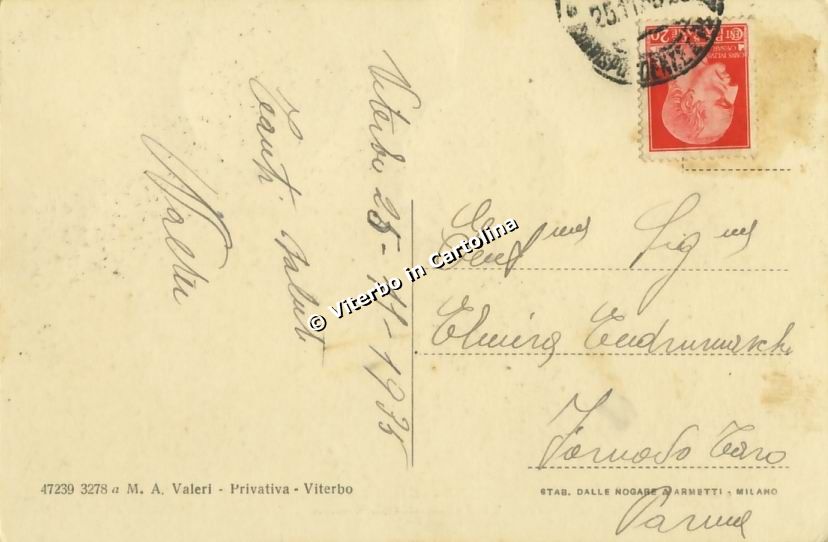 Viterbo 25-11-1935
Tanti saluti
Walter
25.11.35
CORRISPONDENZE
CENT. 20
POSTE ITALIANE
CAESAR
Sig na
Elvira
Fornovo Taro
Parma
© Viterbo in Cartolina
47239 3278 a M. A. Valeri - Privativa - Viterbo
STAB. DALLE NOGARE & ARMETTI - MILANO